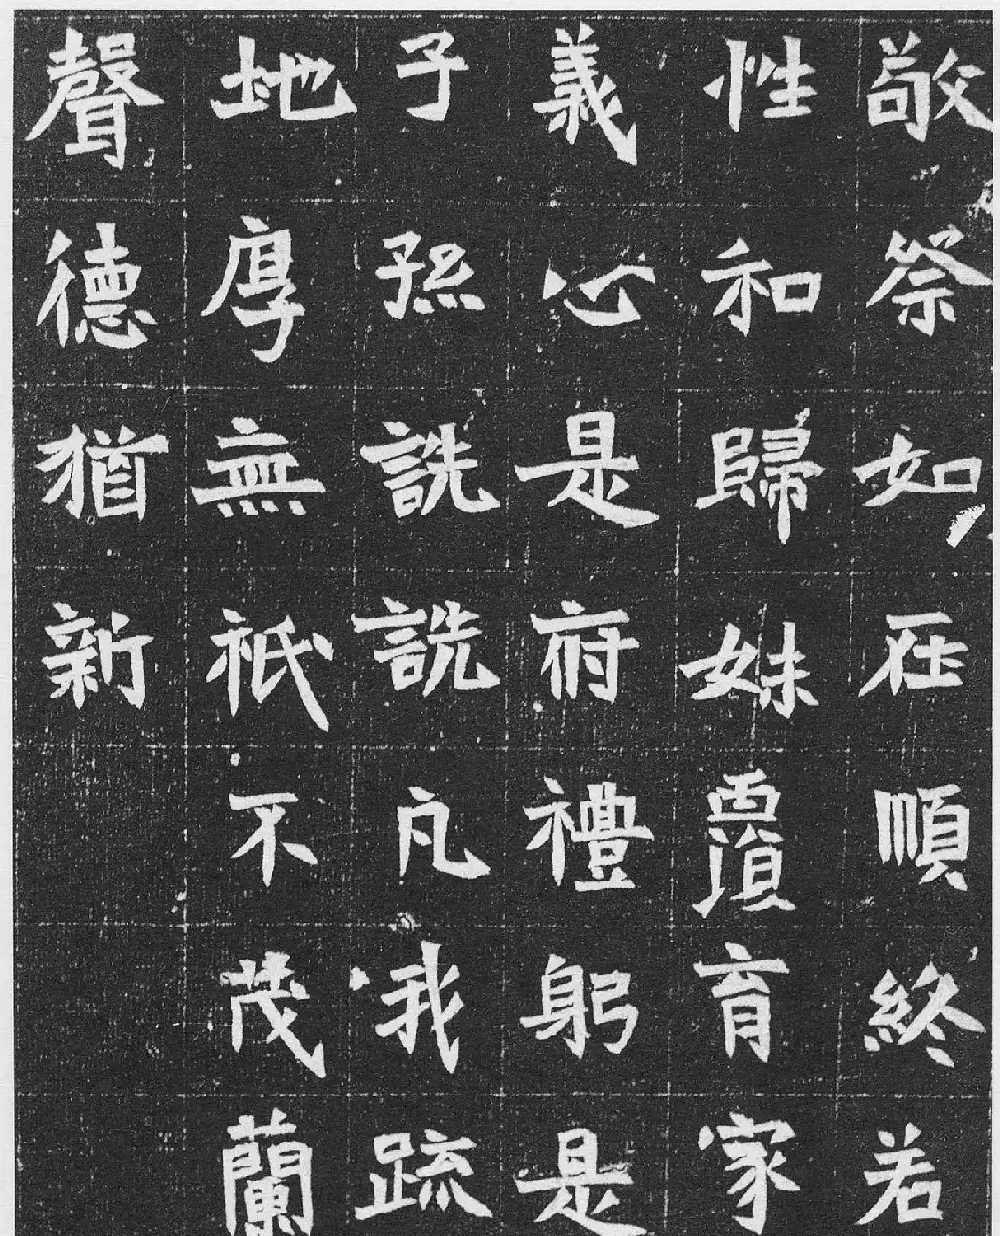 敬祭如在順終若
性和歸妹覆育家
義心是府禮躬是
子孫詵詵凡我疏
地厚無祇不茂蘭
聲德猶新